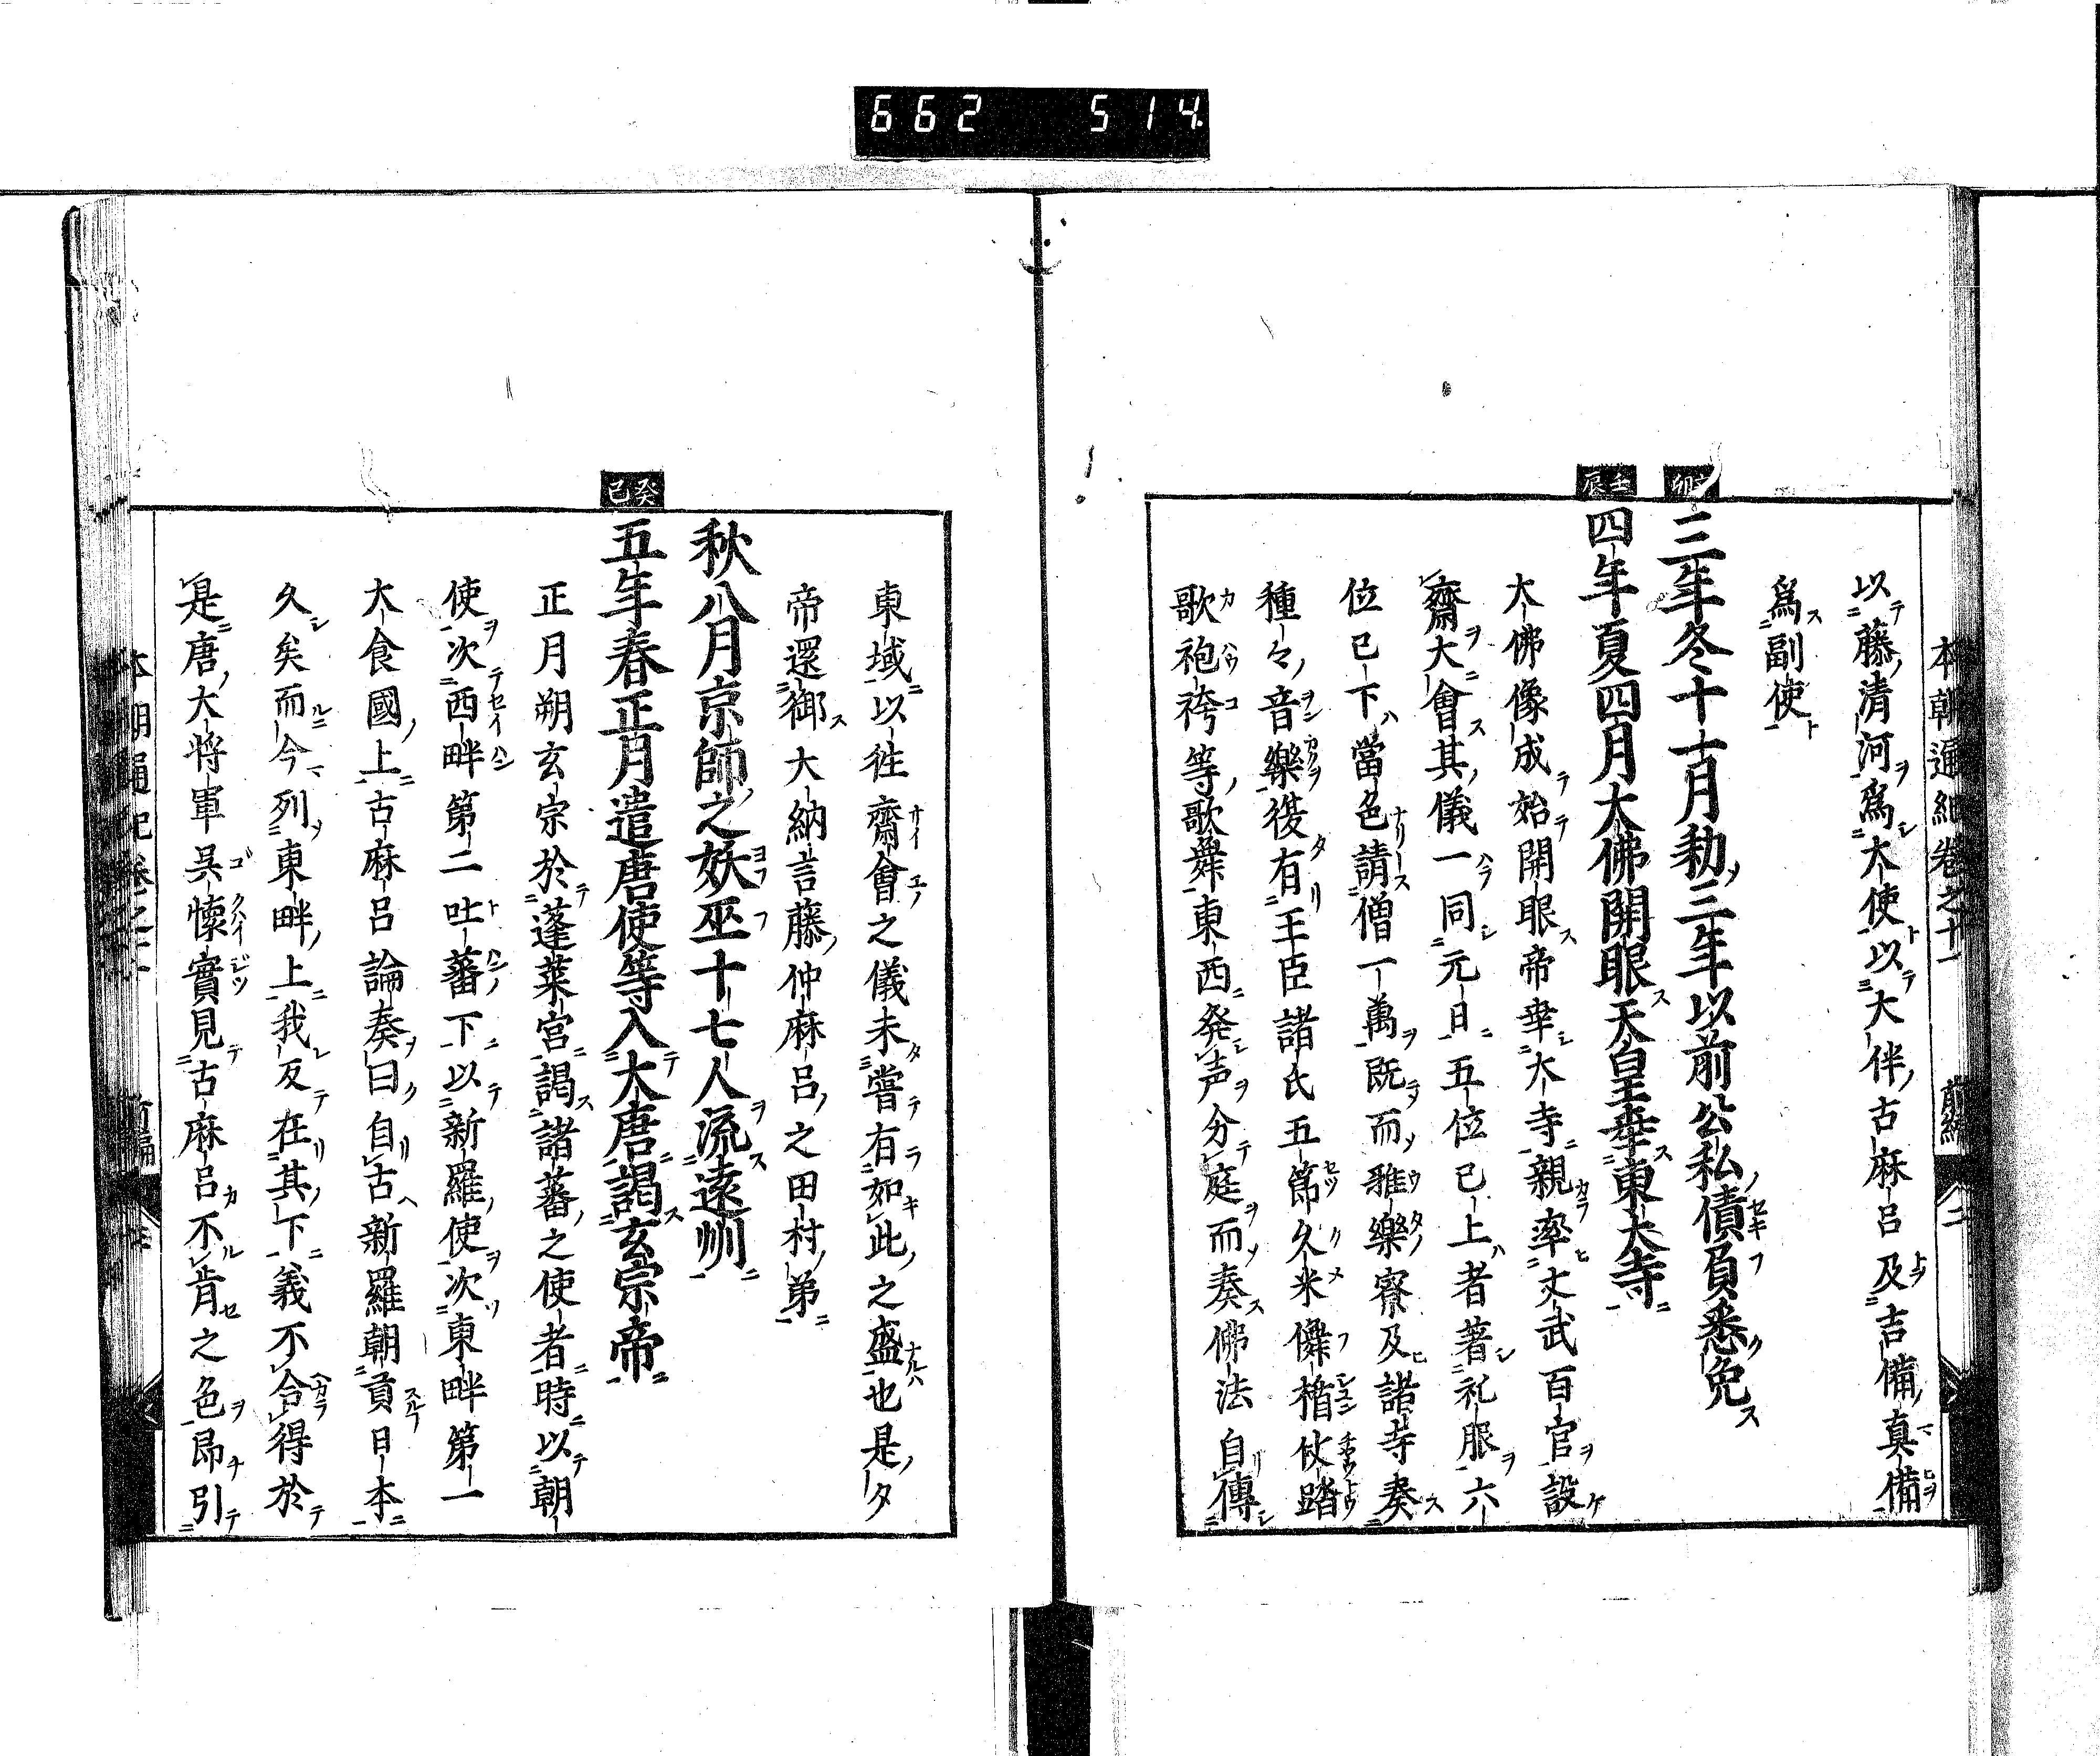 662 514
本朝通紀卷之十一 前編 二
以藤清河爲大使以大伴古麻呂及吉備真備
爲副使
卯
三年冬十一月勅三年以前公私債負悉免
壬辰
四年夏四月大佛開眼天皇幸東大寺
大佛像成始開眼帝幸大寺親率文武百官設
齋大會其儀一同元日五位已上者著礼服六
位已下當色請僧一萬既而雅樂寮及諸寺奏
種々音樂復有王臣諸氏五節久米儛楯伏踏
歌袍袴等歌舞東西発声分庭而奏佛法自傳
東域以往齋會之儀未嘗有如此之盛也是夕
帝還御大納言藤仲麻呂之田村弟
秋八月京師之妖巫十七人流遠州
癸巳
五年春正月遣唐使等入大唐謁玄宗帝
正月朔玄宗於蓬莱宮謁諸蕃之使者時以朝
使次西畔第二吐蕃下以新羅使次東畔第一
大食國上古麻呂論奏曰自古新羅朝貢日本
久矣而今列東畔上我反在其下義不合得於
是唐大将軍呉懐實見古麻呂不肯之色昴引